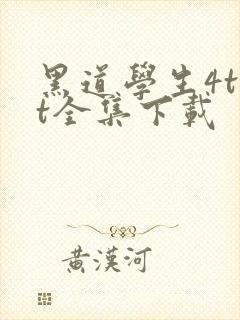 黑道學生4t
t全集下載
黃漢河